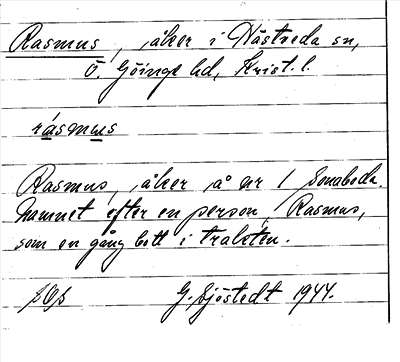 Rasmus, åker i Nästveda sn,
Ö. Göinge hd, Krist. l.
rásmus
Rasmus, åker å nr 1 Sonaboda.
Namnet efter en person, Rasmus,
som en gång bott i trakten.
G. Sjöstedt 1944.